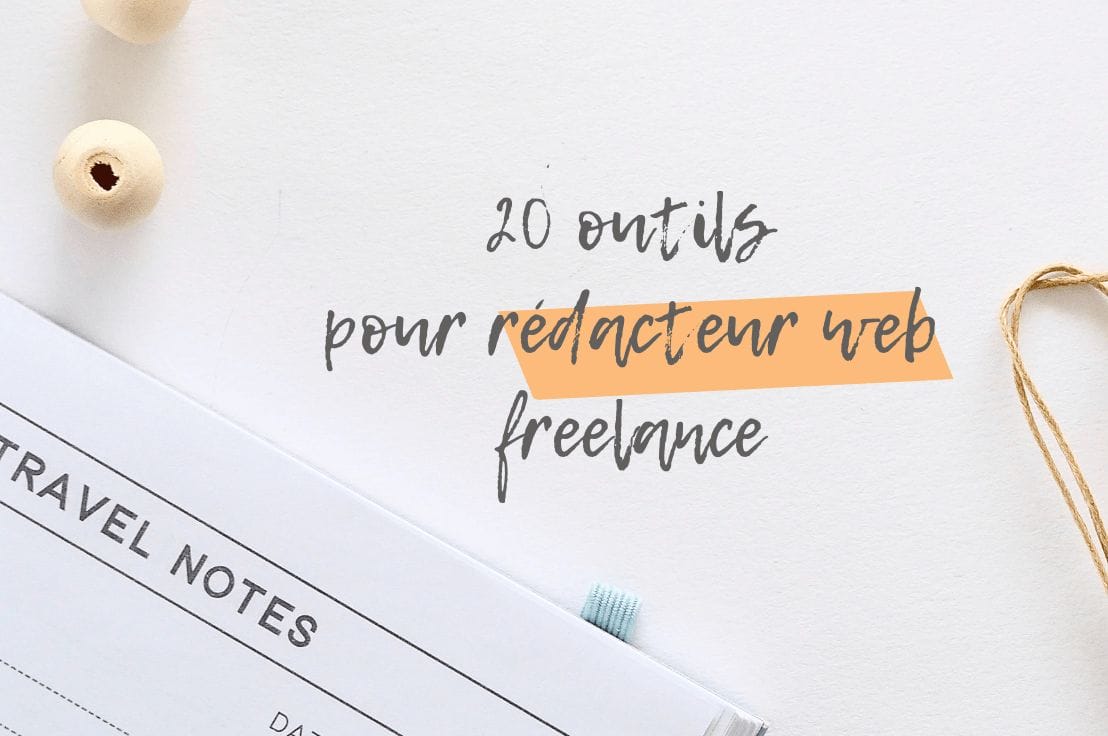 20 outils
pour rédacteur web
freelance
TRAVEL NOTES